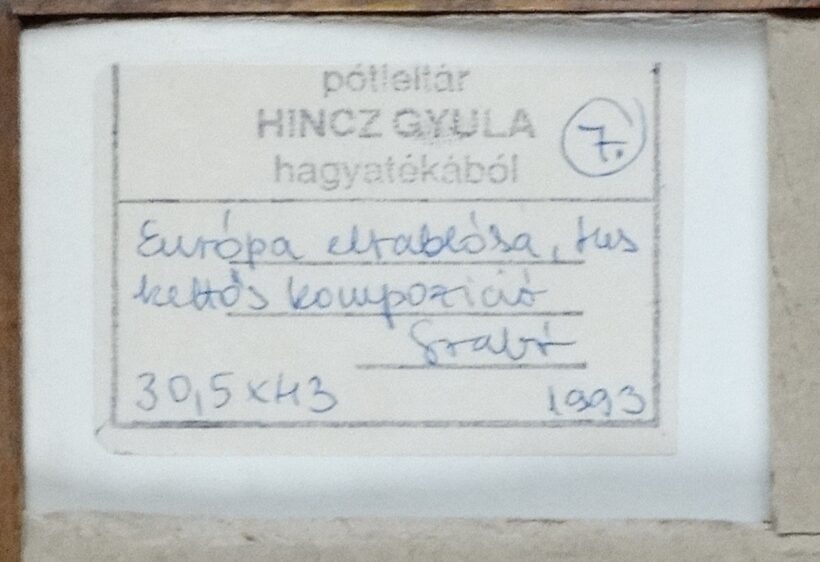 pótleltár
HINCZ GYULA
7.
hagyatékából
Európa elrablása, tus
kettős kompozíció
Szabó
30,5 x 43
1993